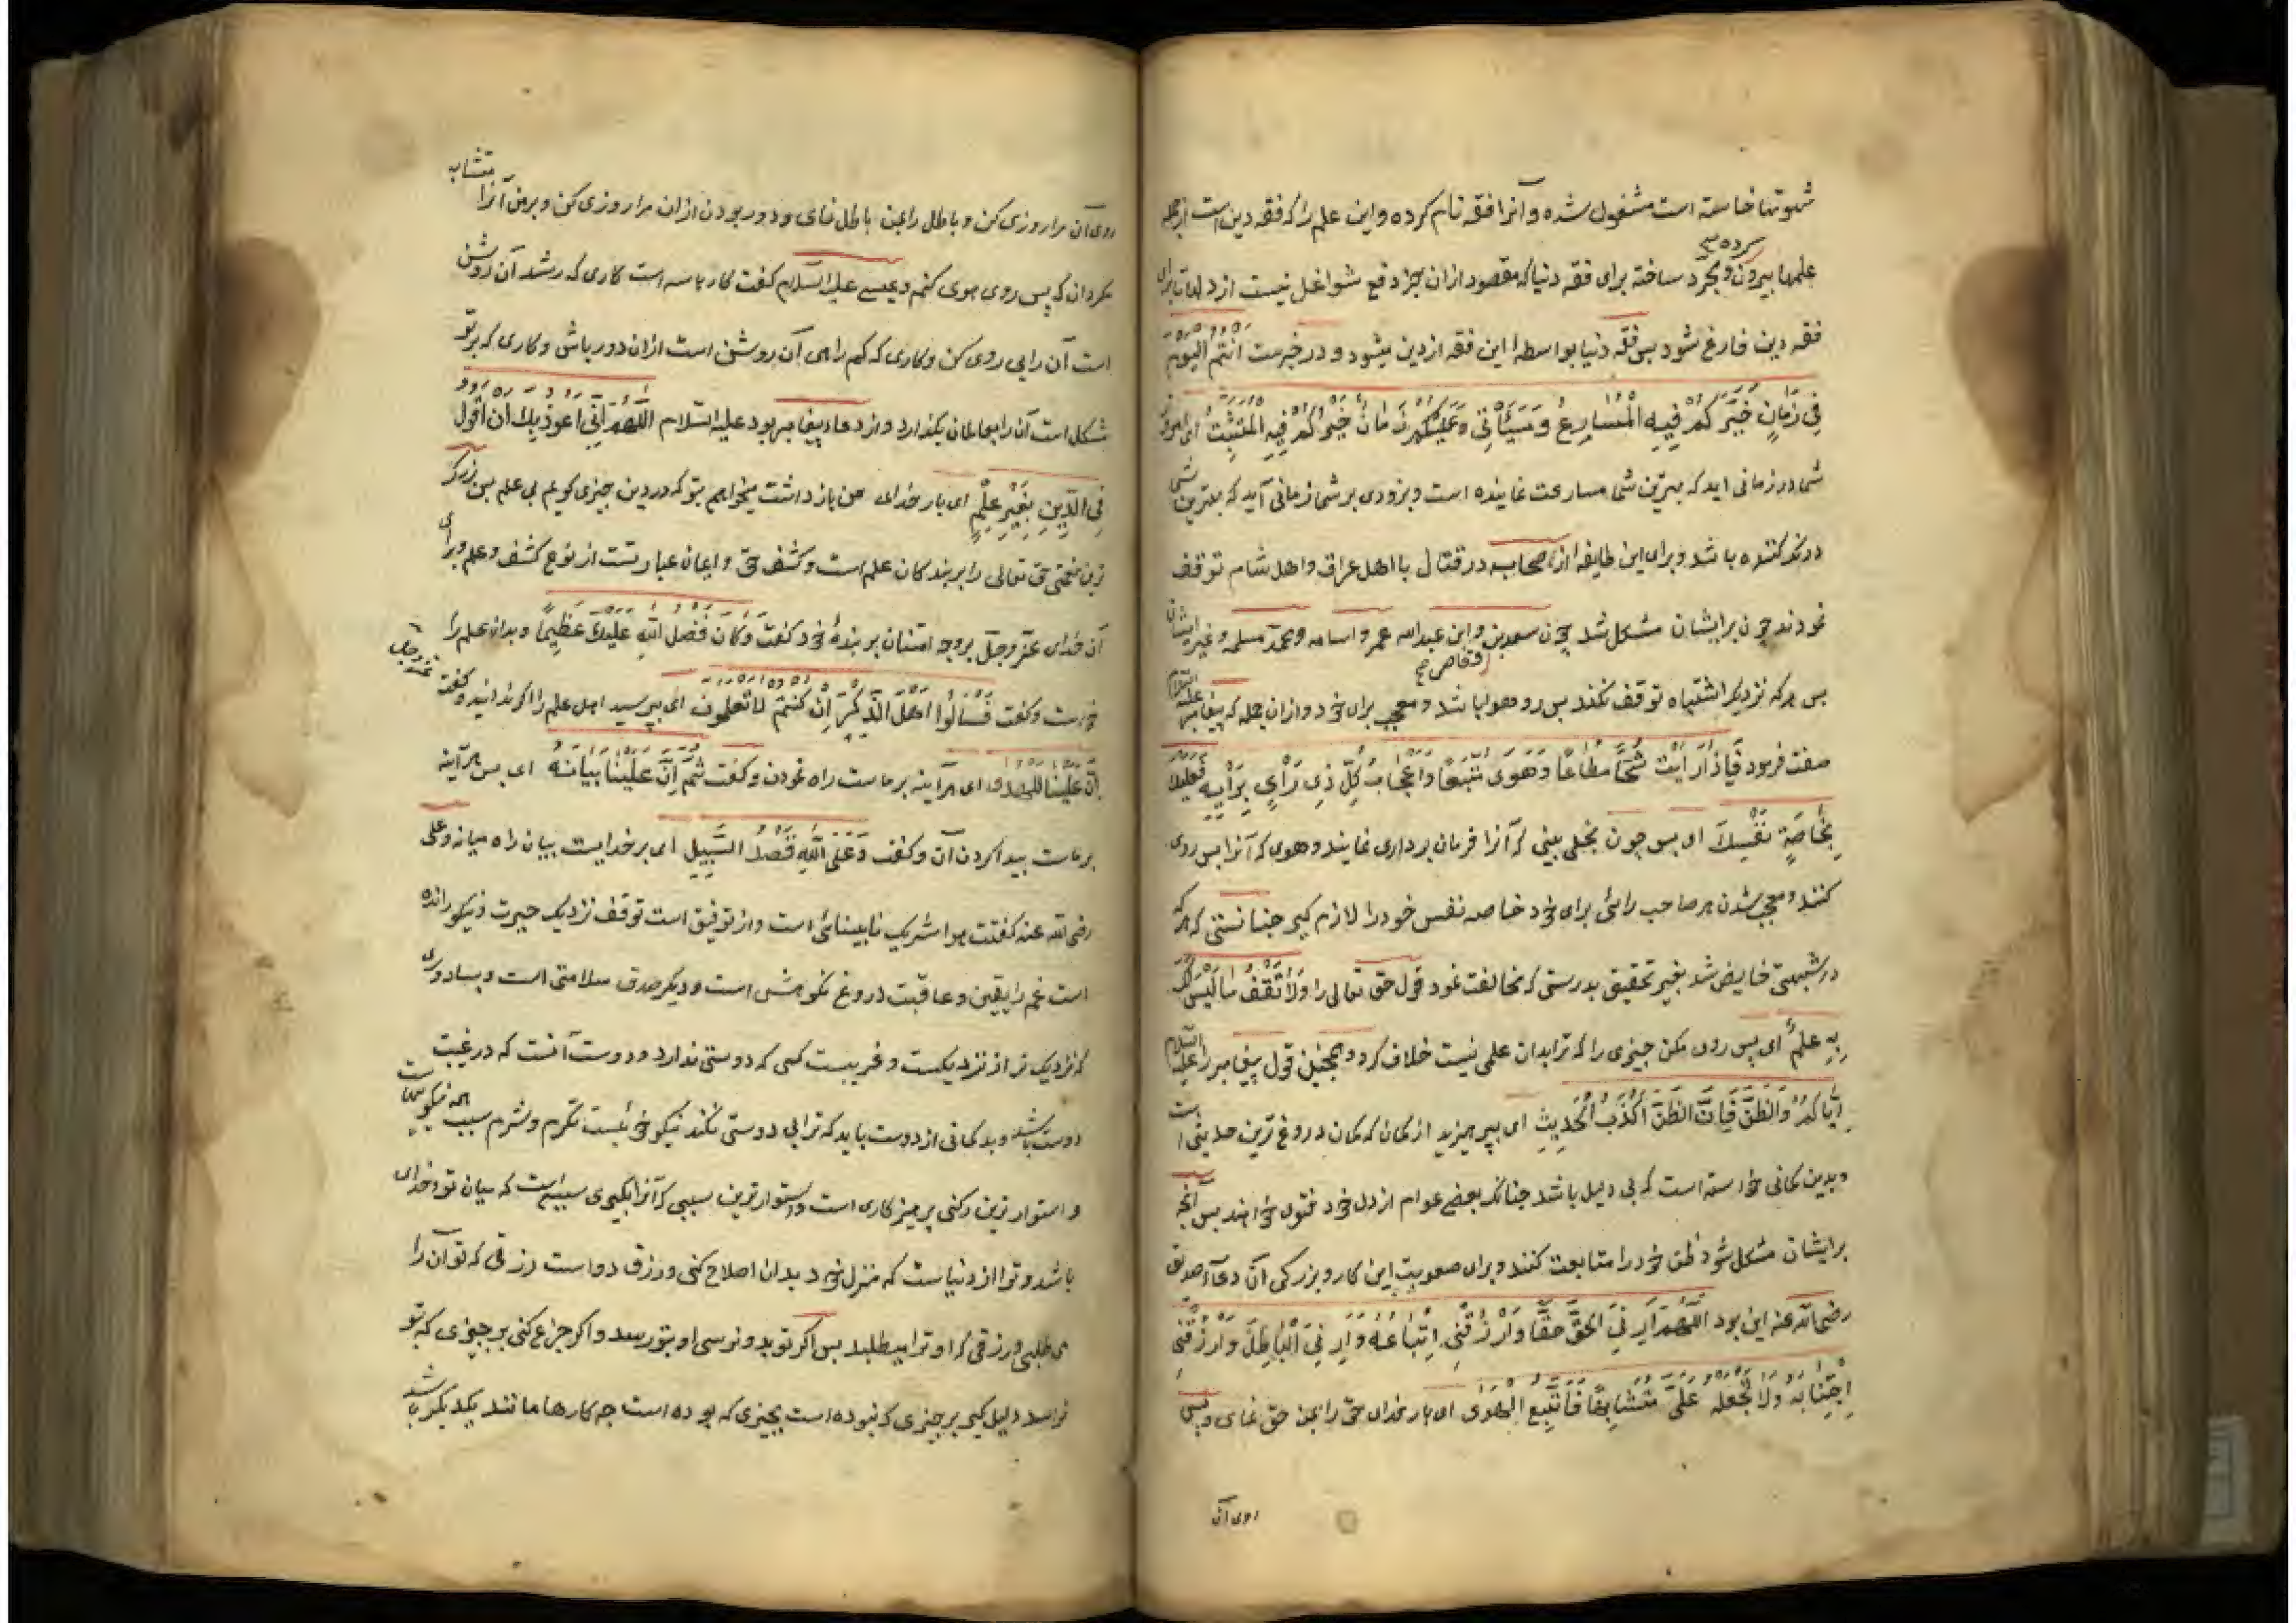 شهوتها خاسته است مشغول شده و آنرا فقه نام کرده و این علم را که فقه دین است از جمله
علمها بیرون کرده و مجرد ساخته برای فقه دنیا که مقصود ازان بجز دفع شواغل نیست از دلها تا برای
فقه دین فارغ شود بس فقه دنیا بواسطهٔ این فقه از دین میشود و در خبرست انتم الیوم
فِی زَمَانٍ خَیْرُکُمْ فِیهِ الْمُسَارِعُ وَسَیَأْتِی عَلَیْکُمْ زَمَانٌ خَیْرُکُمْ فِیهِ الْمُتَثَبِّتُ ای امروز
شما در زمانی اید که بهترین شما مسارعت نماینده است و بزودی بر شما زمانی آید که بهترین شما
درنک کننده باشد و برای این طایفه از صحابه در قتال با اهل عراق و اهل شام توقف
نمودند چون برایشان مشکل شد چون سعد بن وقاص و ابن عبدالله عمر و اسامه و محمد مسلمه و غیر ایشان
بس هر که نزدیک اشتباه توقف نکند بس رو هوا باشد و معجب برای خود و ازان جمله که پیغامبر علیه السلام
صفت فرمود فَإِذَا رَأَیْتَ شُحًّا مُطَاعًا وَهَوًى مُتَّبَعًا وَإِعْجَابَ کُلِّ ذِی رَأْیٍ بِرَأْیِهِ فَعَلَیْكَ
بِخَاصَّةِ نَفْسِكَ ای بس چون بخلی بینی که آنرا فرمان برداری نمایند و هوی که آنرا بس روی
کنند و معجب شدن هر صاحب رائی برای خود خاصه نفس خود را لازم کیر جنانستی که هر که
در شبهتی خایض شد بغیر تحقیق بدرستی که مخالفت نمود قول حق تعالی را وَلَا تَقْفُ مَا لَیْسَ لَكَ
بِهِ عِلْمٌ ای بس روی مکن جیزی را که ترا بدان علمی نیست خلاف کرد و همجنین قول پیغامبر را علیه السلام
إِیَّاکُمْ وَالظَّنَّ فَإِنَّ الظَّنَّ أَکْذَبُ الْحَدِیثِ ای بپرهیزید از کمان که کمان دروغ ترین حدیثی است
و بدین کمانی خواسته است که بی دلیل باشد جنانکه بعضی عوام از دل خود فتوی خواهند بس آنجه
برایشان مشکل شود ظن خود را متابعت کنند و برای صعوبت این کار و بزرکی آن دعاء صدیق
رضی الله عنه این بود اللّٰهُمَّ أَرِنِی الْحَقَّ حَقًّا وَارْزُقْنِی اتِّبَاعَهُ وَأَرِنِی الْبَاطِلَ وَارْزُقْنِی
اجْتِنَابَهُ وَلَا تَجْعَلْهُ عَلَیَّ مُتَشَابِهًا فَأَتَّبِعَ الْهَوَى ای بار خدای حق را بمن حق نمای و بس
روی آن
روی آن مرا روزی کن و باطل را بمن باطل نمای و دور بودن ازان مرا روزی کن و بر من آنرا متشابه
مکردان که پس روی هوی کنم و عیسی علیه السلام کفت کارها سه است کاری که رشد آن روشن
است آن را پی روی کن و کاری که کم راهی آن روشن است ازان دور باش و کاری که بر تو
مشکل است آن را بعالمان بکذار و از دعاء پیغامبر بود علیه السلام اللّٰهُمَّ إِنِّی أعوذ بك أن أقول
فِی الدِّینِ بِغَیْرِ عِلْمٍ ای بار خدای من بازداشت میخواهم بتو که در دین جیزی کویم بی علم بس بزرک
ترین نعمتی حق تعالی را بر بندکان علم است و کشف حق و ایمان عبارتست از نوع کشف و علم و برای
آن خدای عز و جل بر وجه امتنان بر بندهٔ خود کفت وَکَانَ فَضْلُ اللهِ عَلَیْكَ عَظِیمًا و بدان علم را
خواست و کفت فَسْأَلُوا أَهْلَ الذِّکْرِ إِنْ کُنْتُمْ لَا تَعْلَمُونَ ای بپرسید اهل علم را اکر ندانید و کفت
إِنَّ عَلَیْنَا لَلْهُدَى ای هر آینه بر ماست راه نمودن و کفت ثُمَّ إِنَّ عَلَیْنَا بَیَانَهُ ای بس هر آینه
بر ماست پیدا کردن آن و کفت وَعَلَى اللهِ قَصْدُ السَّبِیلِ ای بر خدایست بیان راه میانه و علی
رضی الله عنه کفت هوا شریک نابینائی است و از توفیق است توقف نزدیک حیرت و نیکو راننده
است غم را یقین و عاقبت دروغ نکوهش است و دیکر صدق سلامتی است و بسا دوری
که نزدیک تر از نزدیکست و غریبست کسی که دوستی ندارد و دوست آنست که در غیبت
دوست باشد و بدکمانی از دوست باید که ترا بی دوستی نکند نیکو خوئیست تکرم و شرم سبب همه نیکوییهاست
و استوار ترین رکنی پرهیزکاری است و استوارترین سببی که آنرا بکیری سببی است که میان تو و خدای
باشد و ترا از دنیاست که منزل خود بدان اصلاح کنی و رزق دو است رزقی که تو آن را
می طلبی و رزقی که او ترا میطلبد بس اکر تو بدو نرسی او بتو رسد و اکر جزع کنی بر جیزی که بتو
نرسد دلیل کیر بر جیزی که نبوده است بجیزی که بوده است جه کارها مانند یکدیکر باشد